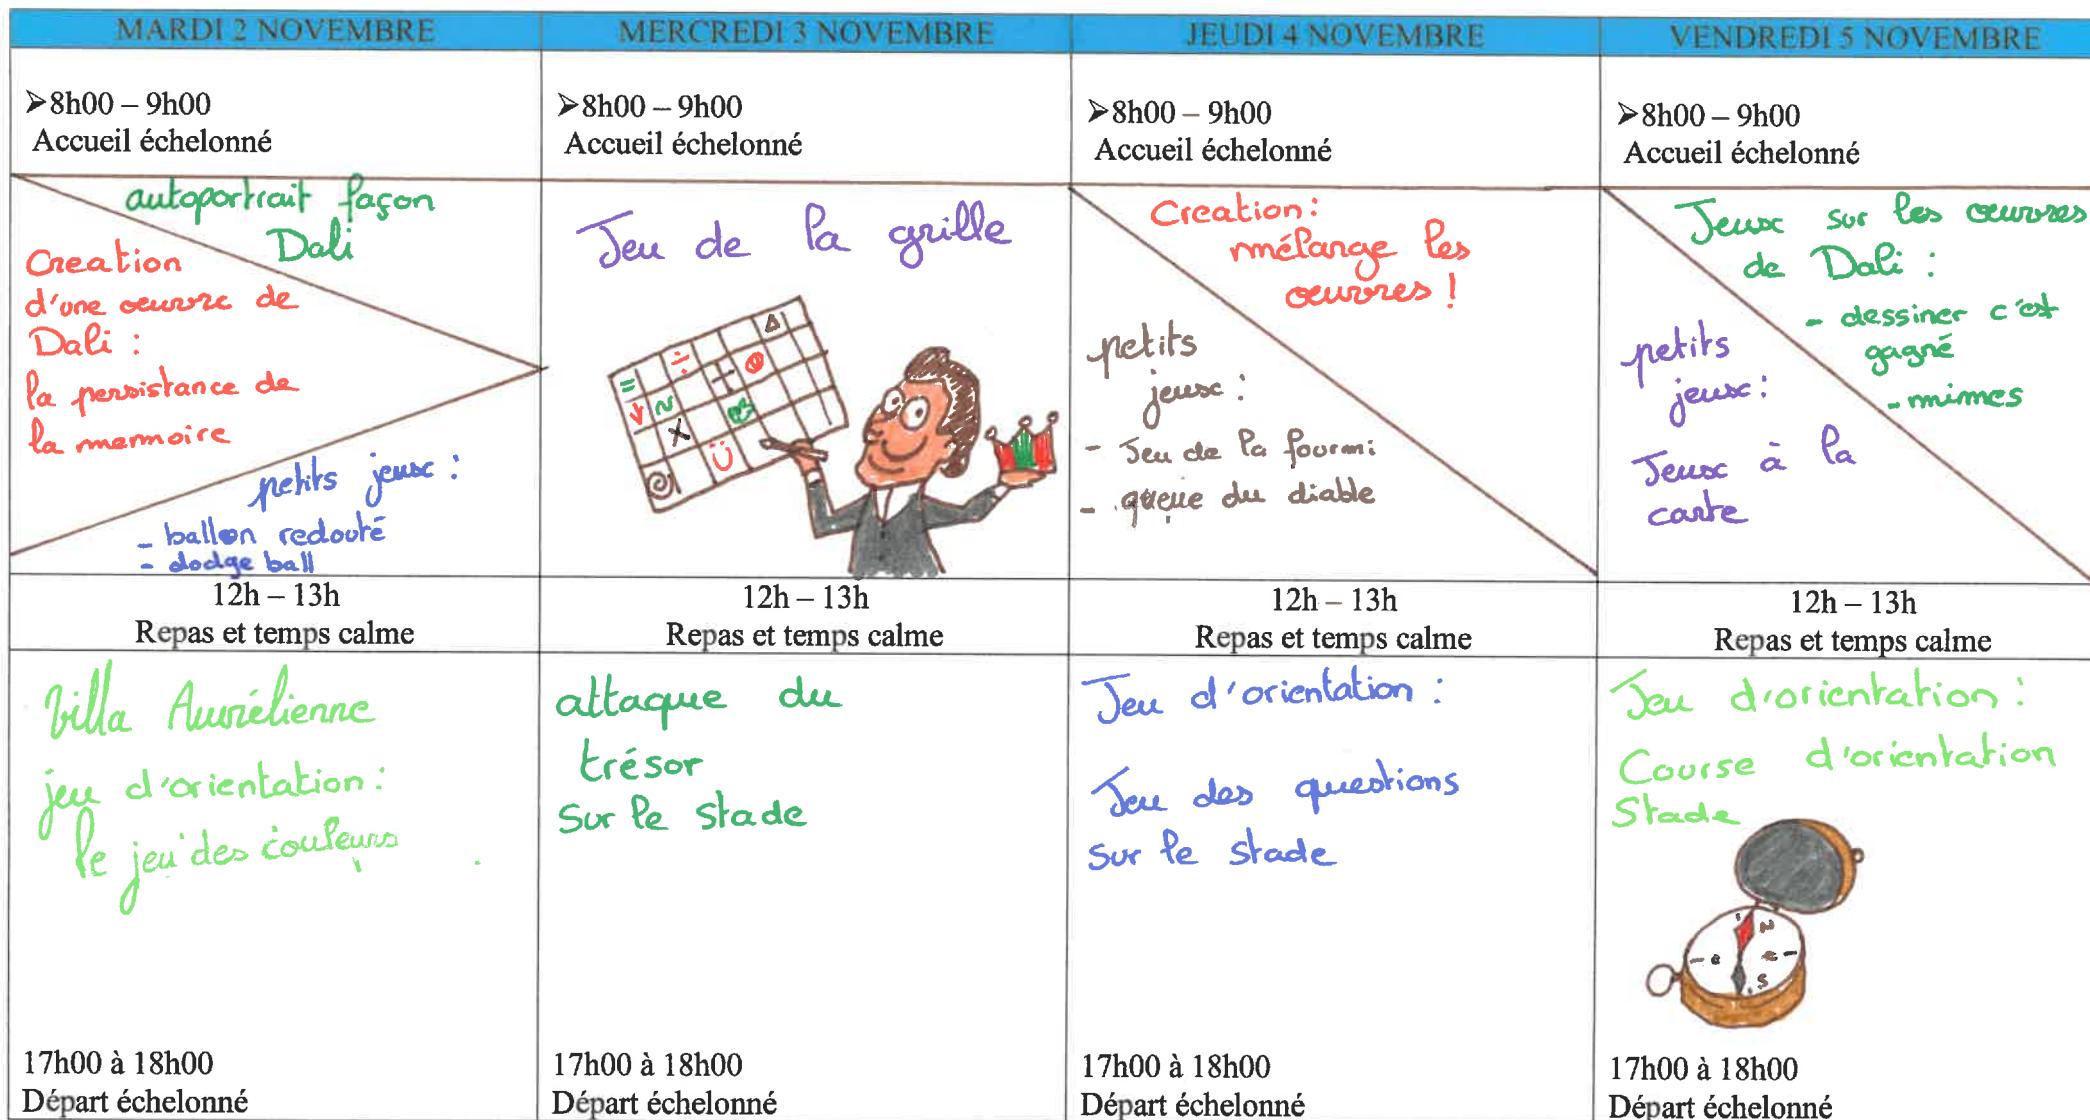 MARDI 2 NOVEMBRE
MERCREDI 3 NOVEMBRE
JEUDI 4 NOVEMBRE
VENDREDI 5 NOVEMBRE
➢8h00 – 9h00
Accueil échelonné
➢8h00 – 9h00
Accueil échelonné
➢8h00 – 9h00
Accueil échelonné
➢8h00 – 9h00
Accueil échelonné
autoportrait façon
Dali
Creation
d'une oeuvre de
Dali :
la persistance de
la memoire
petits jeux :
- ballon redouté
- dodge ball
Jeu de la grille
Creation:
mélange les
œuvres !
petits
jeux :
- Jeu de la fourmi
- queue du diable
Jeux sur les œuvres
de Dali :
- dessiner c'est
gagné
- mimes
petits
jeux :
Jeux à la
carte
12h – 13h
Repas et temps calme
12h – 13h
Repas et temps calme
12h – 13h
Repas et temps calme
12h – 13h
Repas et temps calme
Villa Aurélienne
jeu d'orientation :
le jeu des couleurs
attaque du
trésor
Sur le stade
Jeu d'orientation :
Jeu des questions
sur le stade
Jeu d'orientation :
Course d'orientation
Stade
N
e
S
17h00 à 18h00
Départ échelonné
17h00 à 18h00
Départ échelonné
17h00 à 18h00
Départ échelonné
17h00 à 18h00
Départ échelonné